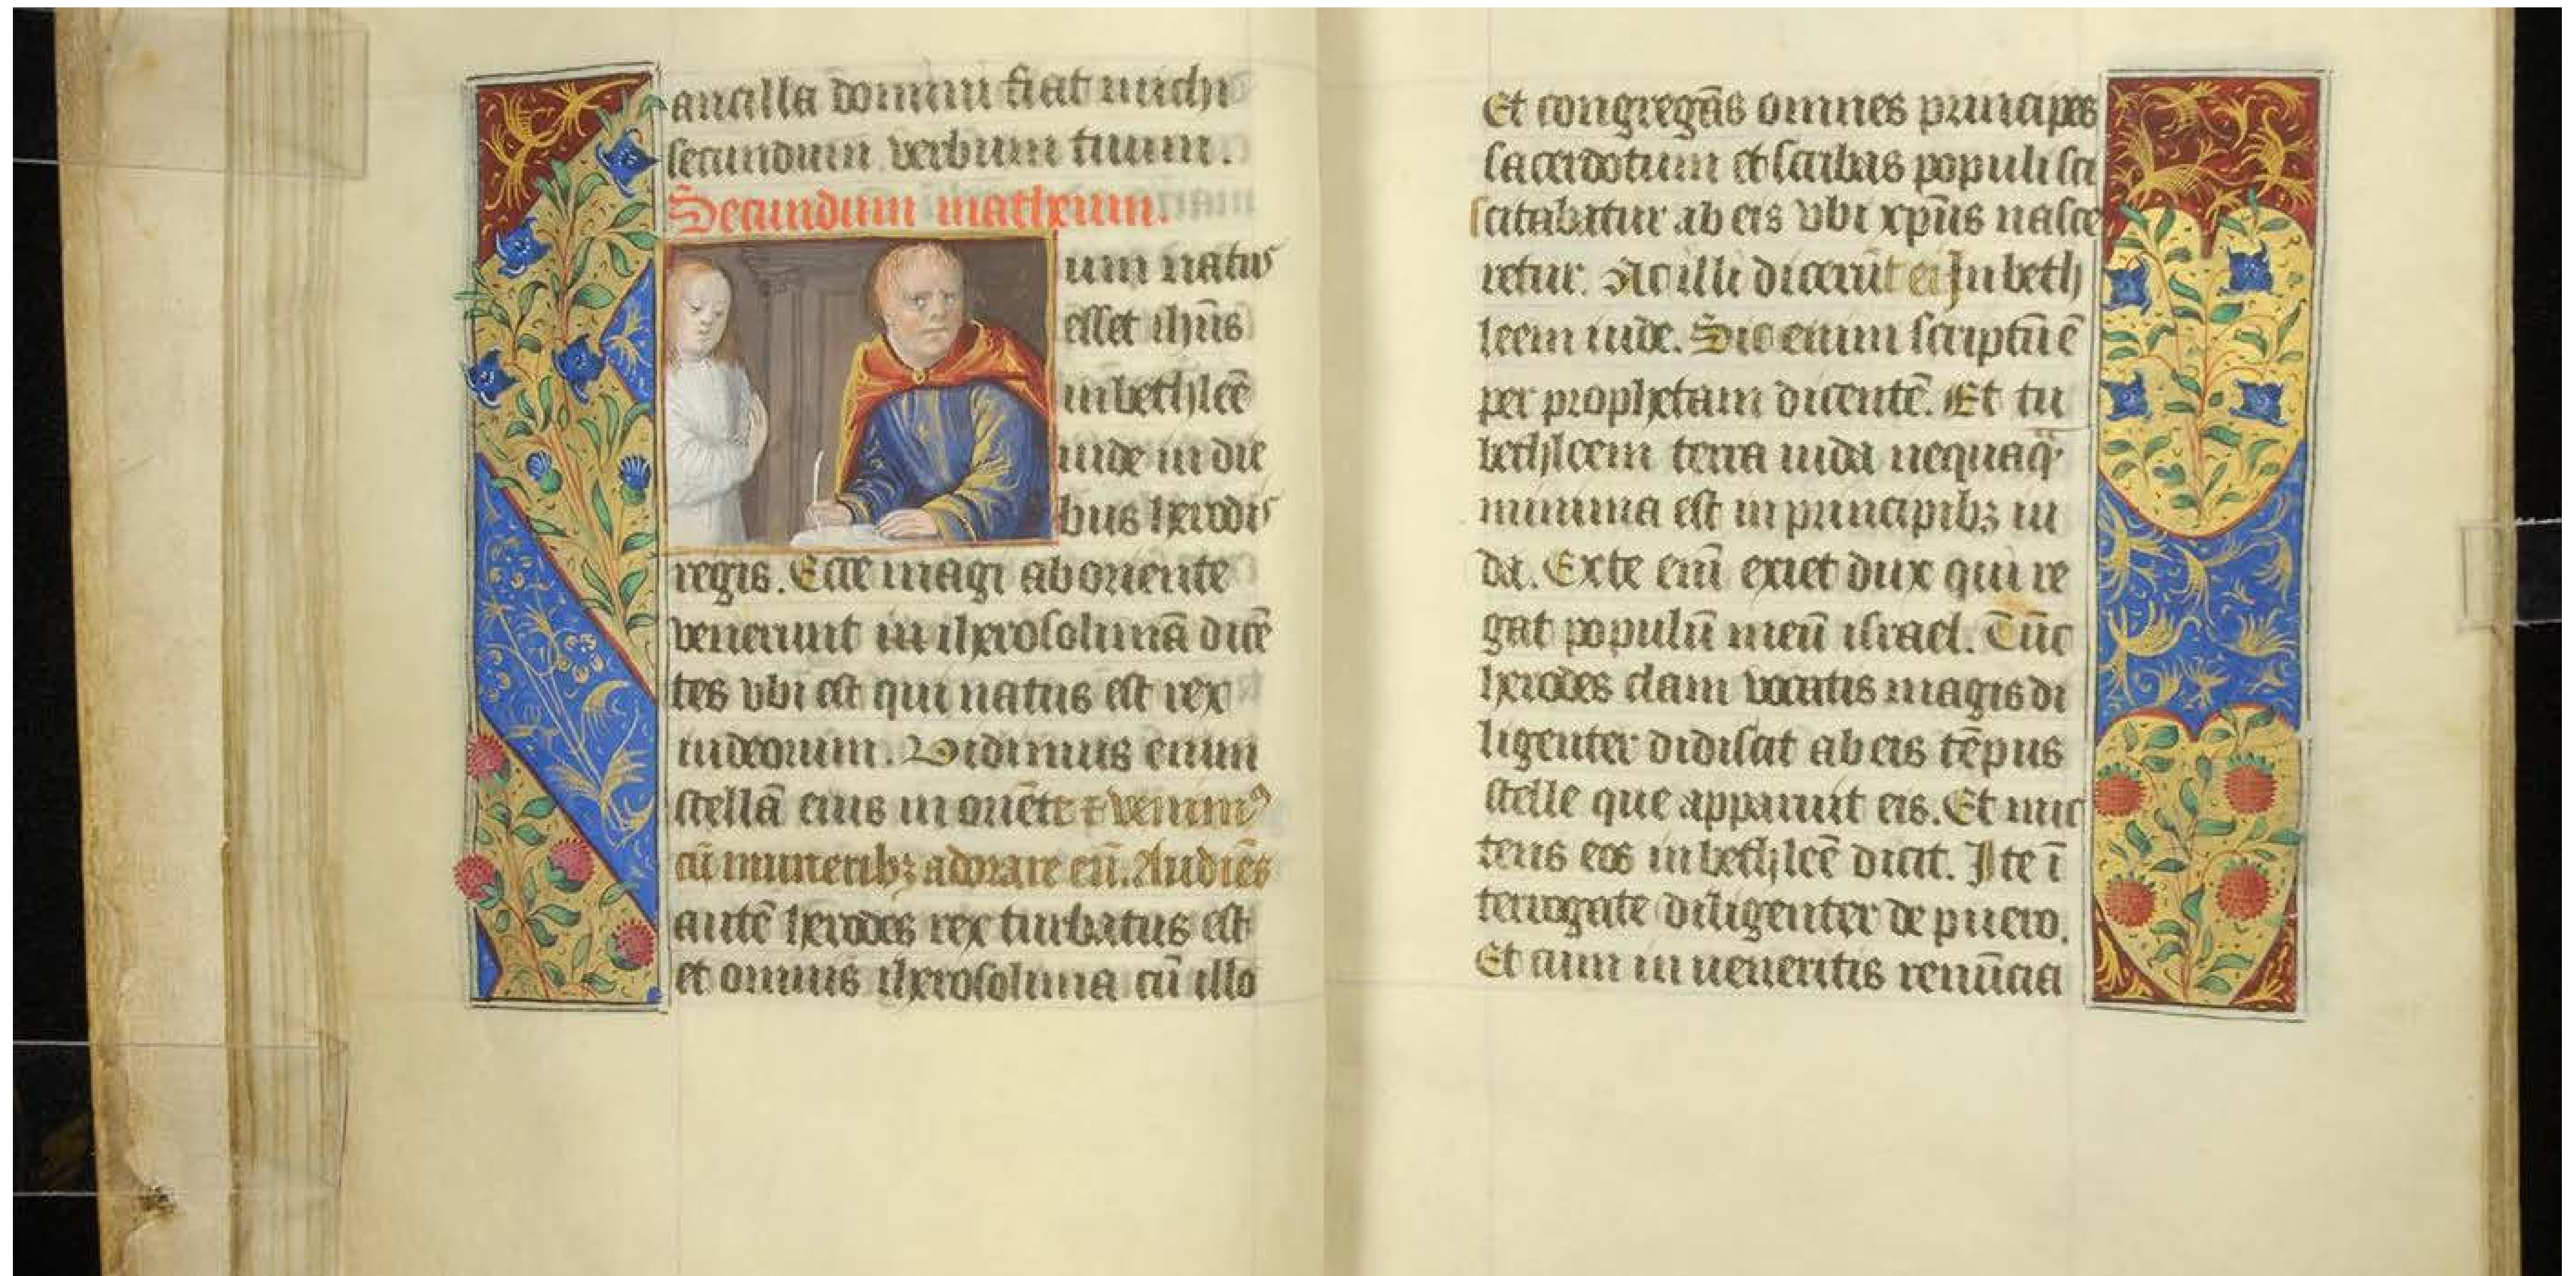 ancilla domini fiat michi
secundum verbum tuum.
Secundum matheum.
um natus
esset ihūs
in bethleē
iude in die
bus herodis
regis. Ecce magi ab oriente
venerunt in iherosolimā dicē
tes vbi est qui natus est rex
iudeorum. Vidimus enim
stellā eius in oriēte ⁊ venimꝰ
cū muneribꝫ adorare eū. Audiēs
autē herodes rex turbatus est
et omnis iherosolima cū illo
Et congregās omnes principes
sacerdotum et scribas populi sci
scitabatur ab eis vbi xp̄us nasce
retur. At illi dicerūt ei In beth
leem iude. Sic enim scriptū ē
per prophetam dicentē. Et tu
bethleem terra iuda nequaq̄
minima est in principibꝫ iu
da. Ex te eni̅ exiet dux qui re
gat populū meū israel. Tūc
herodes clam vocatis magis di
ligenter didisat ab eis tēpus
stelle que apparuit eis. Et mit
tens eos in bethleē dixit. Ite ī
terrogate diligenter de puero.
Et cum in ueneritis renūcia